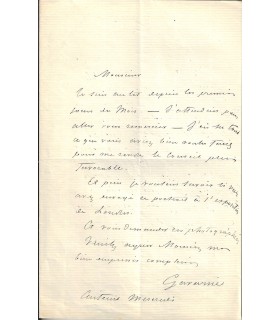 Monsieur
Je suis au lit depuis les premiers
jours du Mois — J'attendais pour
aller vous remercier — J'ai su tout
ce que vous aviez bien voulu faire
pour me rendre le
favorable.
Et puis je voulais savoir si vous
avez envoyé un portrait à l'
de Londres.
et vous demander des photographies
Veuillez agréer Monsieur, mes
bien empressés compliments
Gavarni